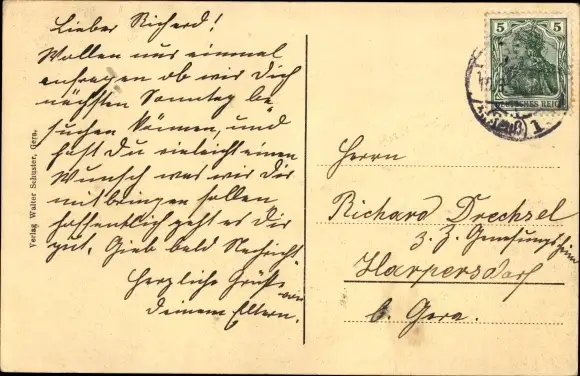 Lieber Richard!
Wollen nur einmal
anfragen ob wir Dich
nächsten Sonntag be-
suchen können, und
hast Du vieleicht einen
Wunsch was wir Dir
mitbringen sollen
hoffentlich geht es Dir
gut. Gieb bald Nachricht
Herzliche Grüße von
Deinen Eltern.
Verlag Walter Schuster, Gera.
5 5
DEUTSCHES REICH
(Reuß)
1
Herrn
Richard Drechsel
z. Z. Genesungsheim
Harpersdorf
b. Gera.